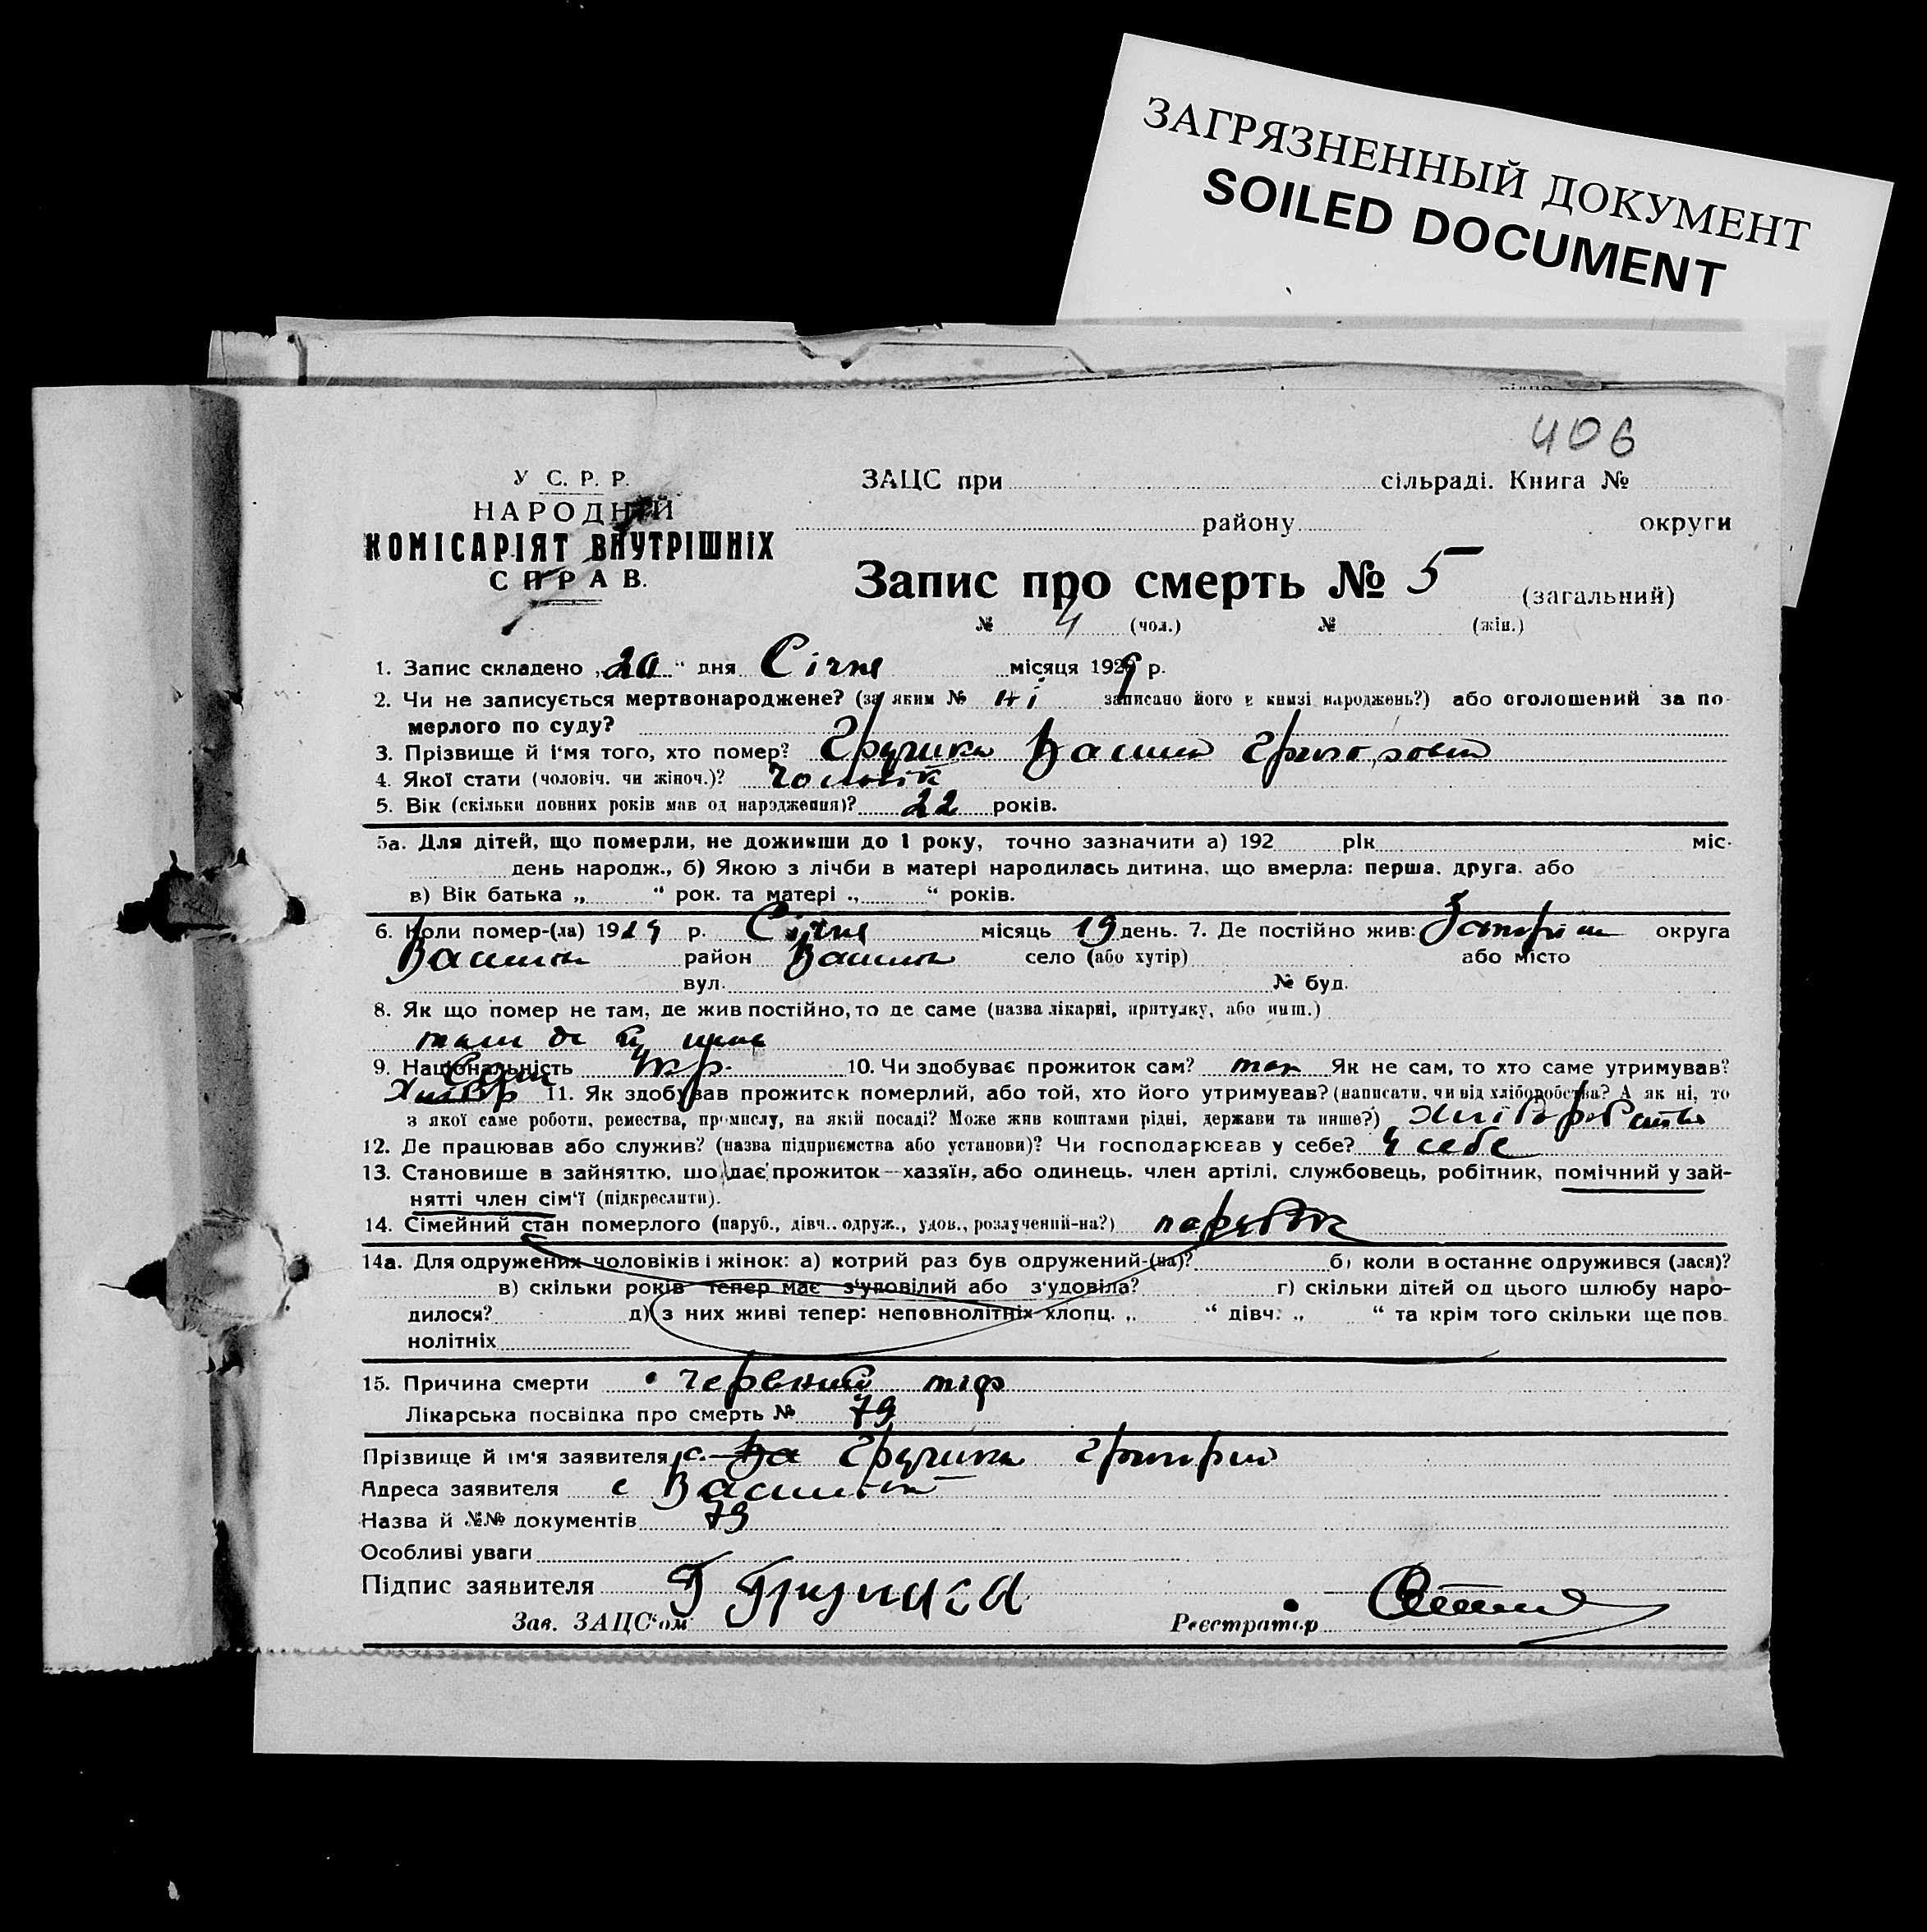 ЗАГРЯЗНЕННЫЙ ДОКУМЕНТ
SOILED DOCUMENT
406
У С. Р. Р.
НАРОДНІЙ
КОМІСАРІЯТ ВНУТРІШНІХ
СПРАВ.
ЗАЦС при сільраді. Книга №
району округи
Запис про смерть № 5 (загальний)
№ 4 (чол.) № (жін.)
1. Запис складено „20“ дня Січня місяця 1929 р.
2. Чи не записується мертвонароджене? (за яким № ні записано його в книзі народжень?) або оголошений за по-
мерлого по суду?
3. Прізвище й і'мя того, хто помер?
4. Якої стати (чоловіч. чи жіноч.)? Чоловік
5. Вік (скільки повних років мав од народження)? 22 років.
5а. Для дітей, що померли, не доживши до 1 року, точно зазначити а) 192 рік міс.
день народж., б) Якою з лічби в матері народилась дитина, що вмерла: перша, друга, або
в) Вік батька „ “ рок. та матері „ “ років.
6. Коли помер-(ла) 1929 р. Січня місяць 19 день. 7. Де постійно жив: округа
район село (або хутір) або місто
вул. № буд.
8. Як що помер не там, де жив постійно, то де саме (назва лікарні, притулку, або инш.)
там де й
9. Національність Укр. 10. Чи здобуває прожиток сам? так Як не сам, то хто саме утримував?
Сам
11. Як здобував прожиток померлий, або той, хто його утримував? (написати, чи від хліборобства? А як ні, то
з якої саме роботи, ремества, промислу, на якій посаді? Може жив коштами рідні, держави та инше?)
12. Де працював або служив? (назва підприємства або установи)? Чи господарював у себе? у себе
13. Становище в зайняттю, що дає прожиток—хазяїн, або одинець, член артілі, службовець, робітник, помічний у зай-
нятті член сім'ї (підкреслити).
14. Сімейний стан померлого (паруб., дівч., одруж., удов., розлучений-на?) парубок
14а. Для одружених чоловіків і жінок: а) котрий раз був одружений-(на)? б) коли востаннє одружився (лася)?
в) скільки років тепер має з'удовілий або з'удовіла? г) скільки дітей од цього шлюбу наро-
дилося? д) з них живі тепер: неповнолітніх хлопц. „ “ дівч. „ “ та крім того скільки ще пов.
нолітніх
15. Причина смерти черевний тіф
Лікарська посвідка про смерть № 79
Прізвище й ім'я заявителя
Адреса заявителя с
Назва й №№ документів 79
Особливі уваги
Підпис заявителя Г
Зав. ЗАЦС'ом Реєстратор